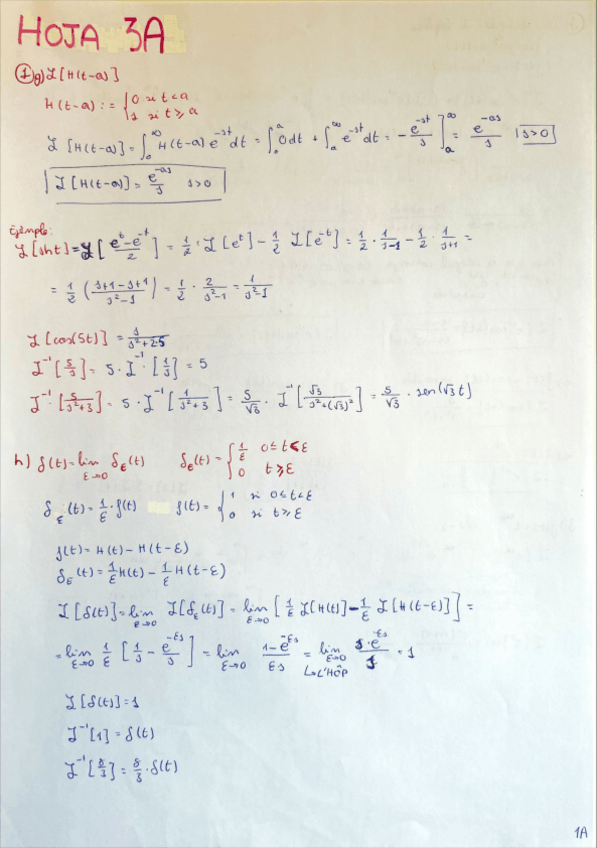 HOJA 3A
1 g) L[H(t-a)]
H(t-a) := { 0 si t<a
1 si t≥a
L[H(t-a)] = ∫₀^∞ H(t-a) e^-st dt = ∫₀^a 0dt + ∫ₐ^∞ e^-st dt = - e^-st/s ]ₐ^∞ = e^-as/s |s>0|
L[H(t-a)] = e^-as/s s>0
Ejemplo:
L[sht] = L[(e^t - e^-t)/2] = 1/2 · L[e^t] - 1/2 L[e^-t] = 1/2 · 1/(s-1) - 1/2 · 1/(s+1) =
= 1/2 ((s+1-s+1)/(s²-1)) = 1/2 · 2/(s²-1) = 1/(s²-1)
L[cos(5t)] = s/(s²+25)
L^-1[5/s] = 5 · L^-1[1/s] = 5
L^-1[5/(s²+3)] = 5 · L^-1[1/(s²+3)] = 5/√3 · L^-1[√3/(s²+(√3)²)] = 5/√3 · sen(√3 t)
h) δ(t) = lim ε→0 δε(t) δε(t) = { 1/ε 0≤t<ε
0 t≥ε
δε(t) = 1/ε · f(t) f(t) = { 1 si 0≤t<ε
0 si t≥ε
f(t) = H(t) - H(t-ε)
δε(t) = 1/ε H(t) - 1/ε H(t-ε)
L[δ(t)] = lim ε→0 L[δε(t)] = lim ε→0 [1/ε L[H(t)] - 1/ε L[H(t-ε)]] =
= lim ε→0 1/ε [1/s - e^-εs/s] = lim ε→0 (1-e^-εs)/εs = lim ε→0 (s·e^-εs)/s = 1
↳L'HÔP
L[δ(t)] = 1
L^-1[1] = δ(t)
L^-1[8/3] = 8/3 · δ(t)
1A